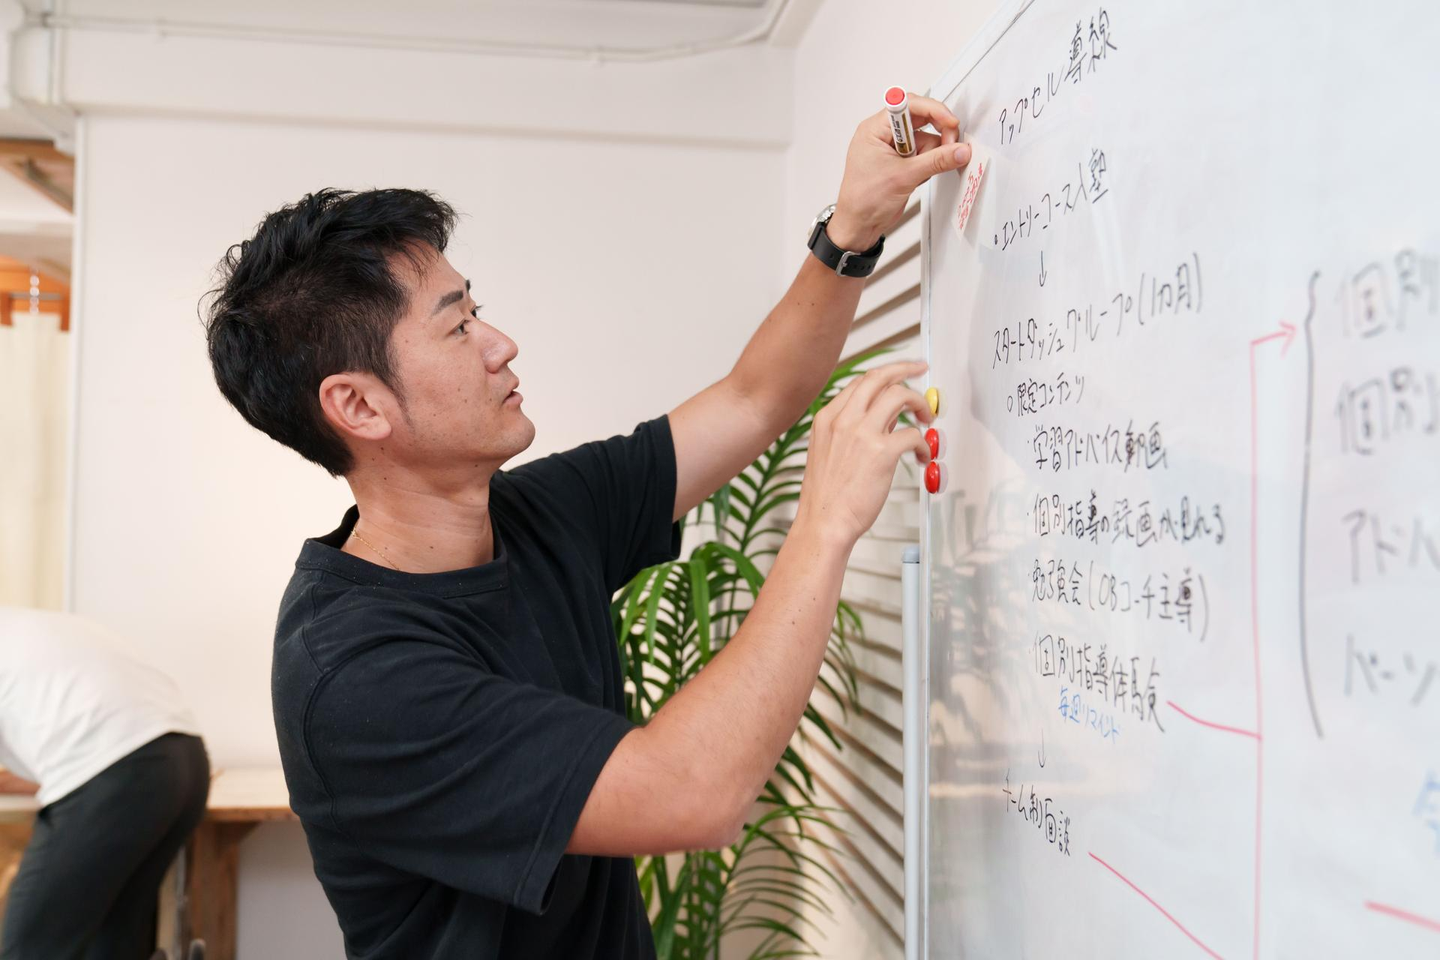 アップセル導線
・エントリーコース入塾
↓
スタートダッシュグループ(1カ月)
○限定コンテンツ
・学習アドバイス動画
・個別指導の録画が見れる
・勉強会(OBコーチ主導)
・個別指導体験
毎週リマインド
↓
チーム制面談
個別
個別
アドバ
パーソ